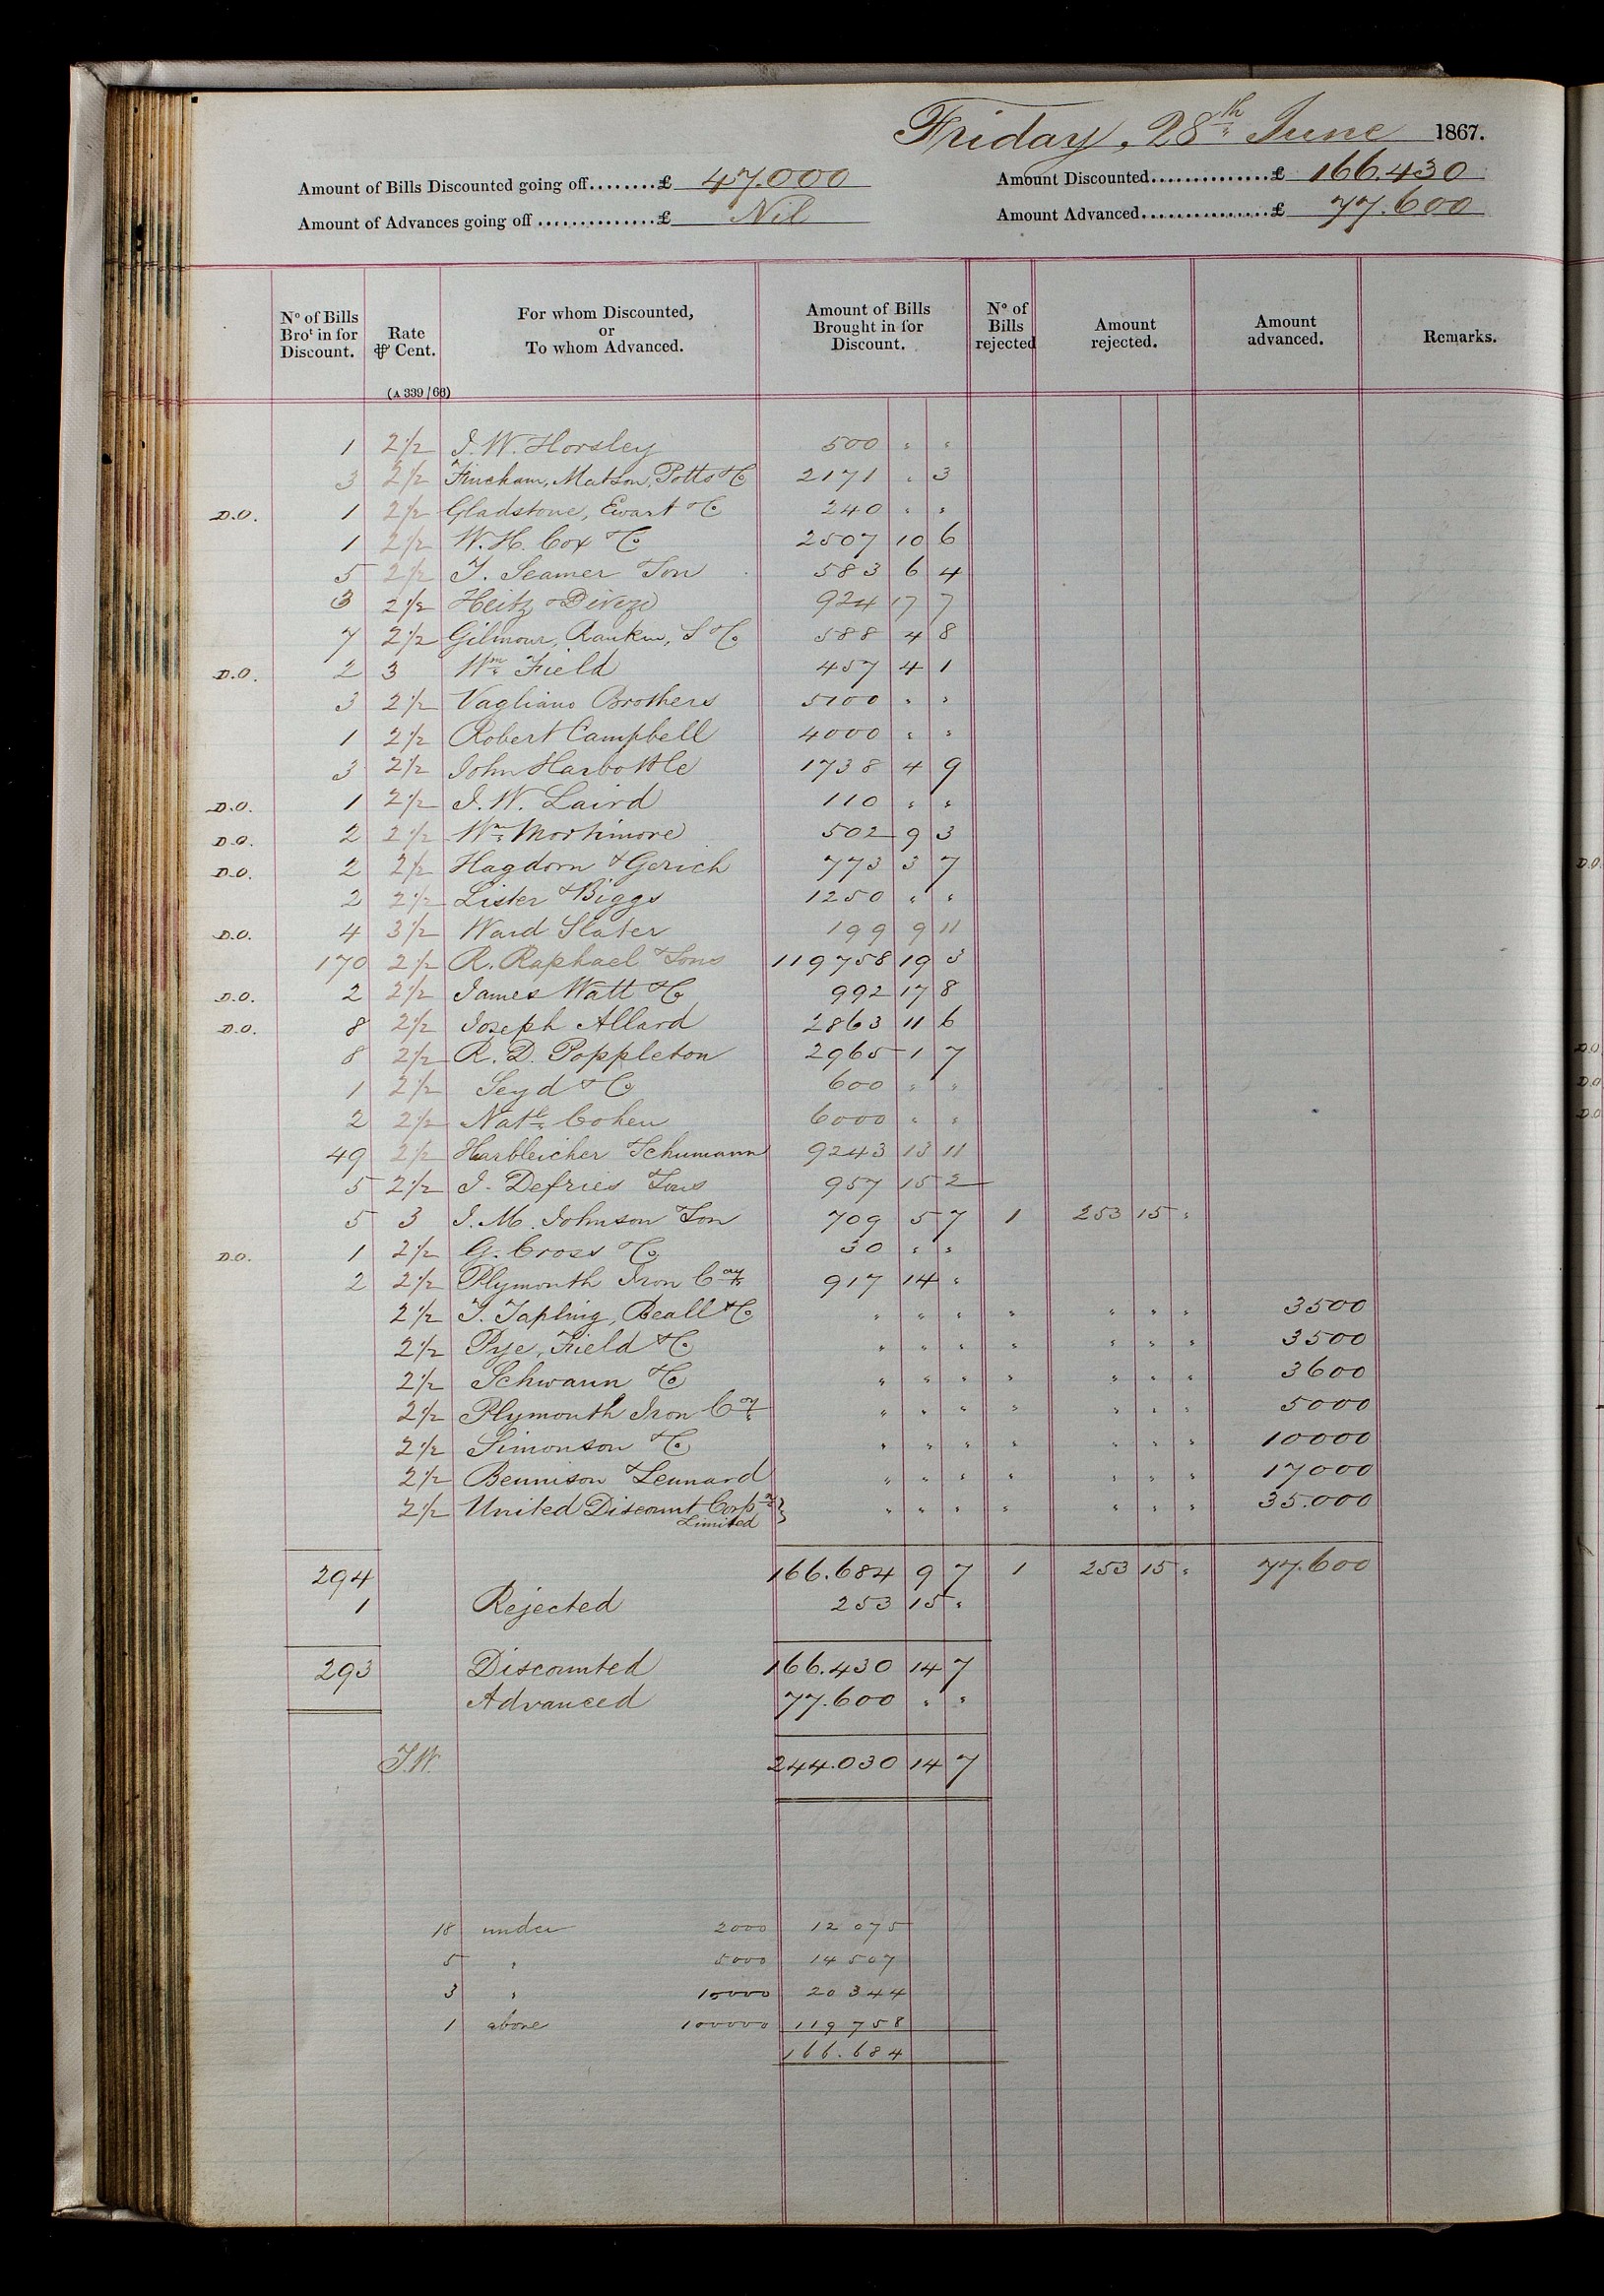 Friday, 28th June 1867.
Amount of Bills Discounted going off........£ 47.000 Amount Discounted..............£ 166.430
Amount of Advances going off..............£ Nil Amount Advanced...............£ 77.600
No of Bills Brot in for Discount. Rate ⅌ Cent. (A 339/66) For whom Discounted, or To whom Advanced. Amount of Bills Brought in for Discount. No of Bills rejected Amount rejected. Amount advanced. Remarks.
1 2½ J. W. Horsley 500 " "
3 2½ Fincham, Matson, Potts & Co 2171 " 3
D.O. 1 2½ Gladstone, Ewart & Co 240 " "
1 2½ W. H. Cox & Co 2507 10 6
5 2½ T. Seamer & Son 583 6 4
3 2½ Heitz & 924 17 7
7 2½ Gilmour, Rankin, S & Co 588 4 8
D.O. 2 3 Wm Field 457 4 1
3 2½ Vagliano Brothers 5100 " "
1 2½ Robert Campbell 4000 " "
3 2½ John Harbottle 1738 4 9
D.O. 1 2½ J. W. Laird 110 " "
D.O. 2 2½ Wm Mortimore 502 9 3
D.O. 2 2½ Hagdorn & Gerich 773 3 7
2 2½ Lister & Biggs 1250 " "
D.O. 4 3½ Ward Slater 199 9 11
170 2½ R. Raphael & Sons 119758 19 3
D.O. 2 2½ James Watt & Co 992 17 8
D.O. 8 2½ Joseph Allard 2863 11 6
8 2½ R. D. Poppleton 2965 1 7
1 2½ Seyd & Co 600 " "
2 2½ Natl Cohen 6000 " "
49 2½ Harbleicher & Schumann 9243 13 11
5 2½ J. Defries & Sons 957 15 2
5 3 J. M. Johnson & Son 709 5 7 1 253 15 "
D.O. 1 2½ G. Cross & Co 30 " "
2 2½ Plymouth Iron Coay 917 14 "
2½ T. Tapling, Beall & Co " " " " " " " 3500
2½ Pye, Field & Co " " " " " " " 3500
2½ Schwann & Co " " " " " " " 3600
2½ Plymouth Iron Coy " " " " " " " 5000
2½ Simonson & Co " " " " " " " 10000
2½ Bennison & Lennard " " " " " " " 17000
2½ United Discount Corpn " " " " " " " 35.000
Limited
294 166.684 9 7 1 253 15 " 77.600
1 Rejected 253 15 "
293 Discounted 166.430 14 7
Advanced 77.600 " "
J.W. 244.030 14 7
18 under 2000 12 075
5 " 5000 14 507
3 " 10000 20 344
1 above 100000 119 758
166.684
D.O.
D.O
D.O
D.O